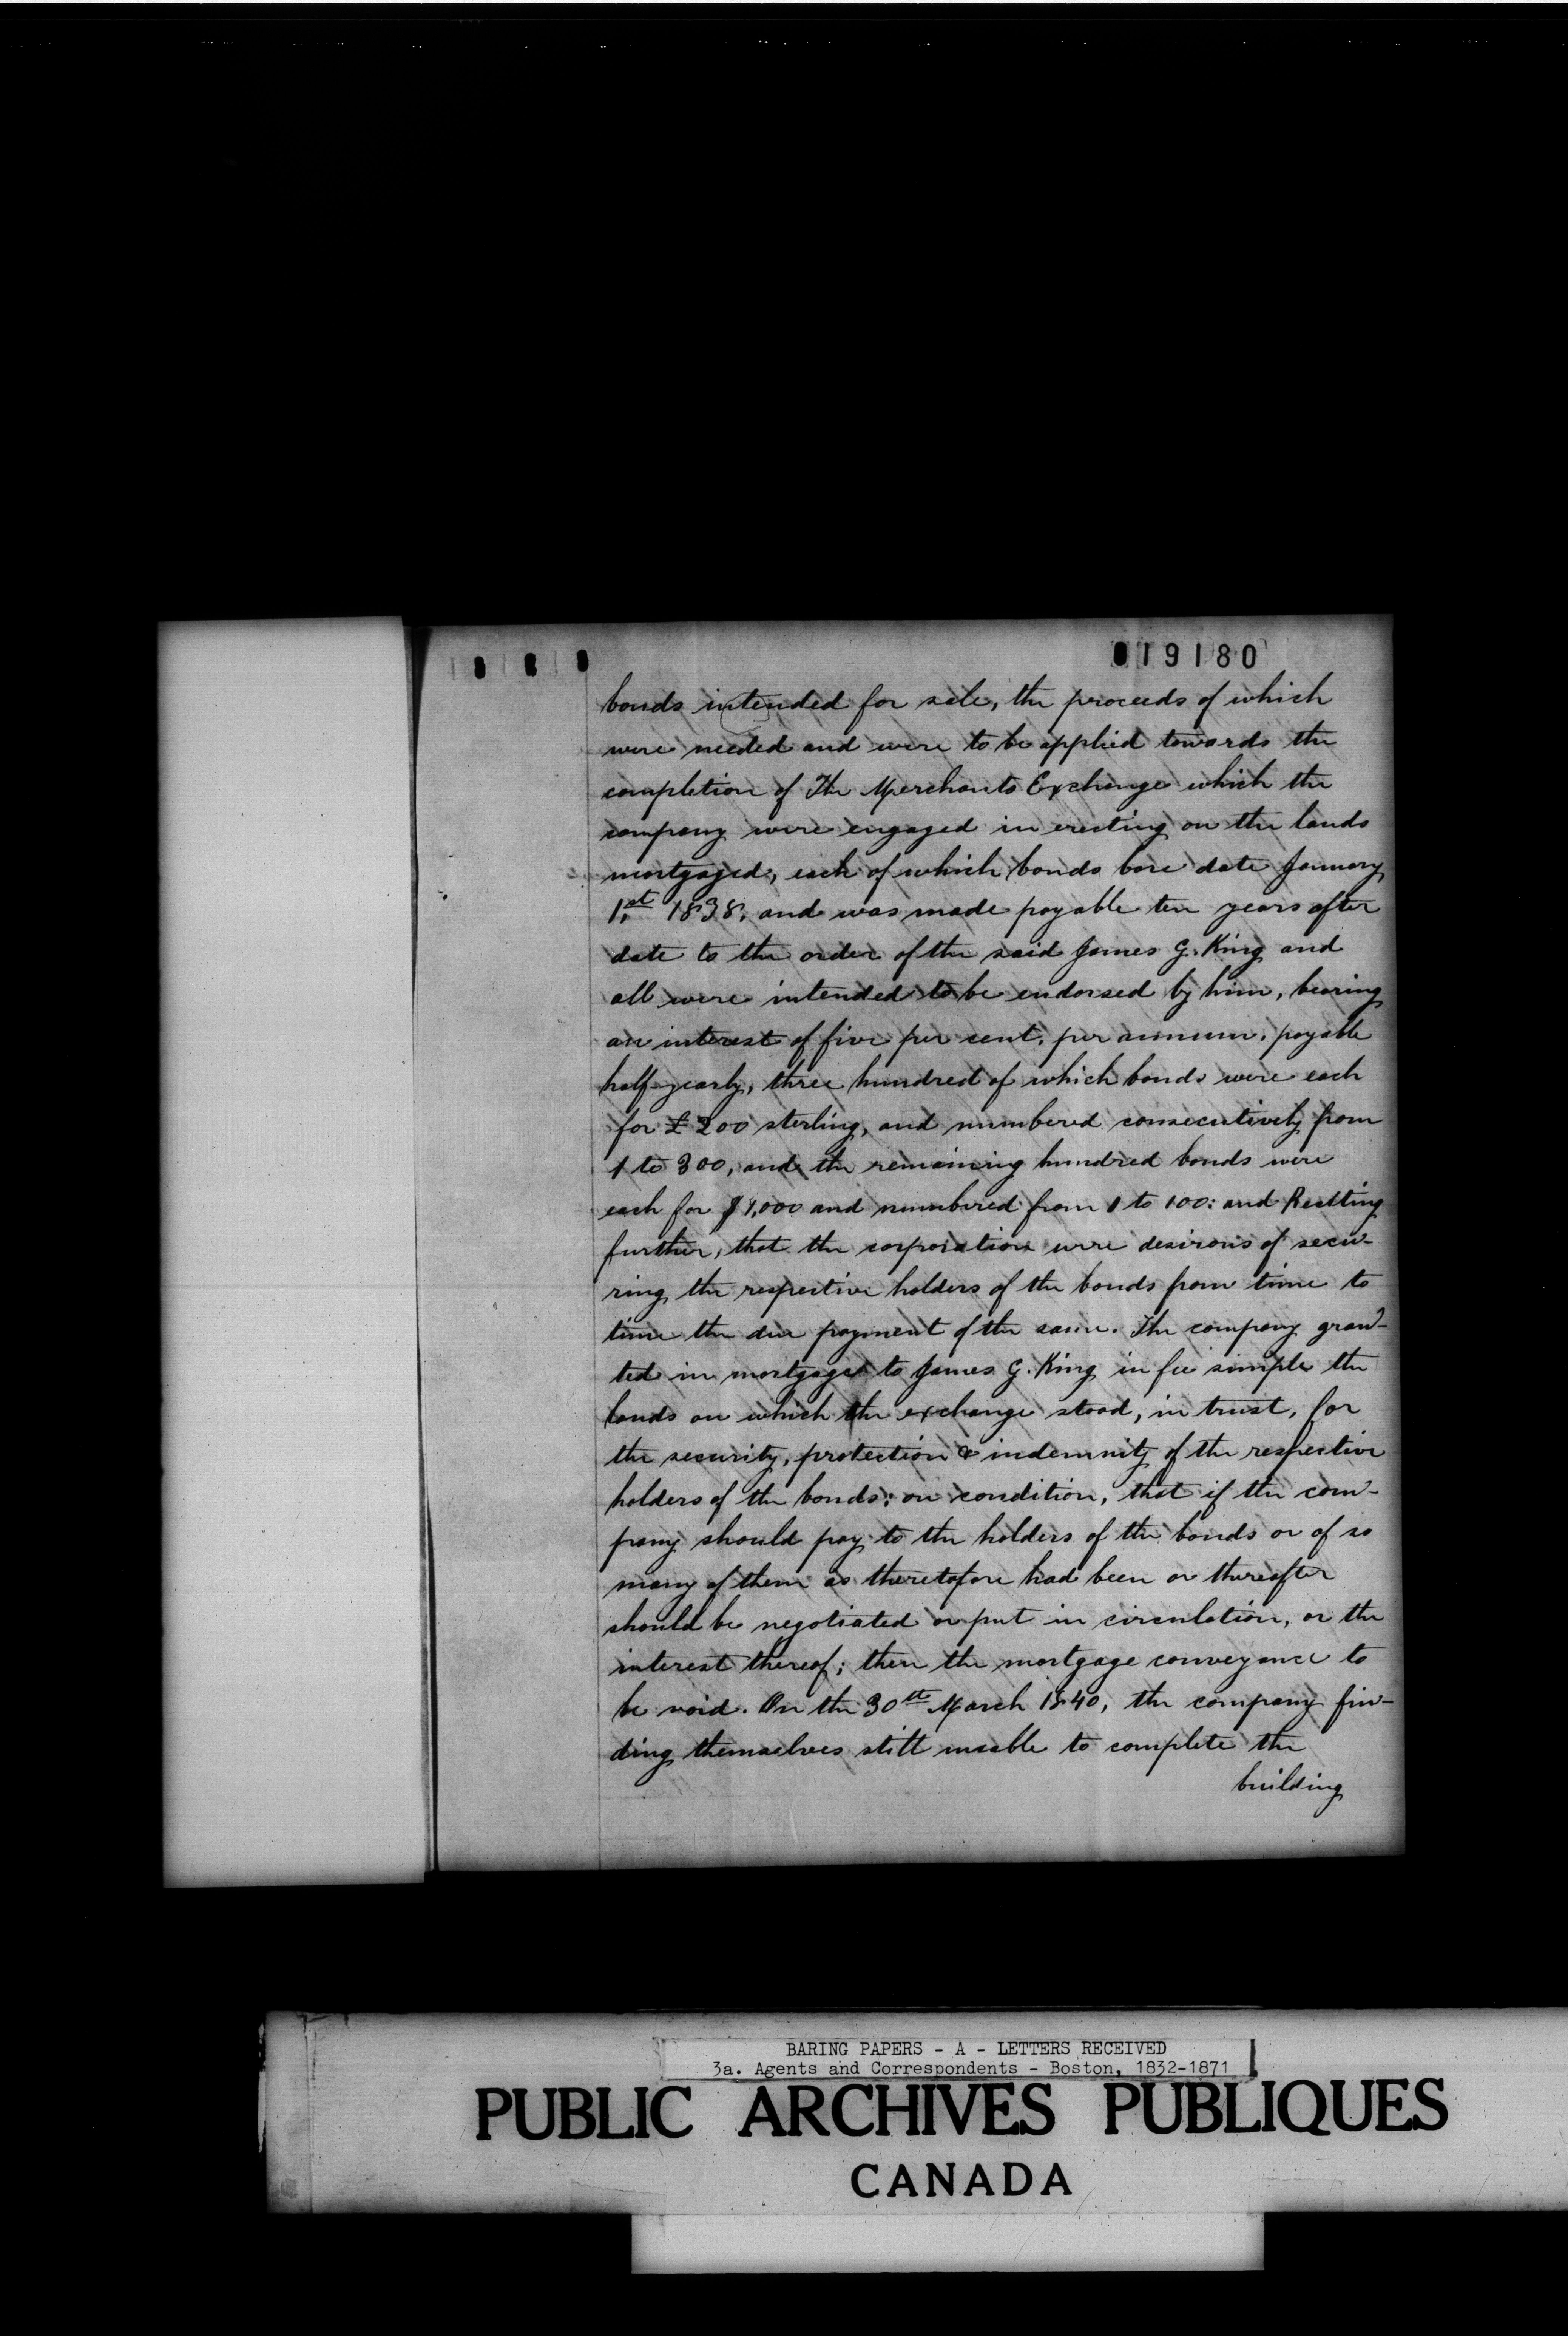 019180
bonds intended for sale, the proceeds of which
were needed and were to be applied towards the
completion of The Merchants Exchange which the
company were engaged in erecting on the lands
mortgaged, each of which bonds bore date January
1st 1838, and was made payable ten years after
date to the order of the said James G. King and
all were intended to be endorsed by him, bearing
an interest of five per cent. per annum, payable
half-yearly, three hundred of which bonds were each
for £200 sterling, and numbered consecutively from
1 to 300, and the remaining hundred bonds were
each for $1,000 and numbered from 1 to 100: and Reciting
further, that the corporation were desirous of secu-
ring the respective holders of the bonds from time to
time the due payment of the same. The company gran-
ted in mortgage to James G. King in fee simple the
lands on which the exchange stood, in trust, for
the security, protection & indemnity of the respective
holders of the bonds: on condition, that if the com-
pany should pay to the holders of the bonds or of so
many of them as theretofore had been or thereafter
should be negotiated or put in circulation, or the
interest thereof; then the mortgage conveyance to
be void. On the 30th March 1840, the company fin-
ding themselves still unable to complete the
building
BARING PAPERS - A - LETTERS RECEIVED
3a. Agents and Correspondents - Boston, 1832-1871
PUBLIC ARCHIVES PUBLIQUES
CANADA